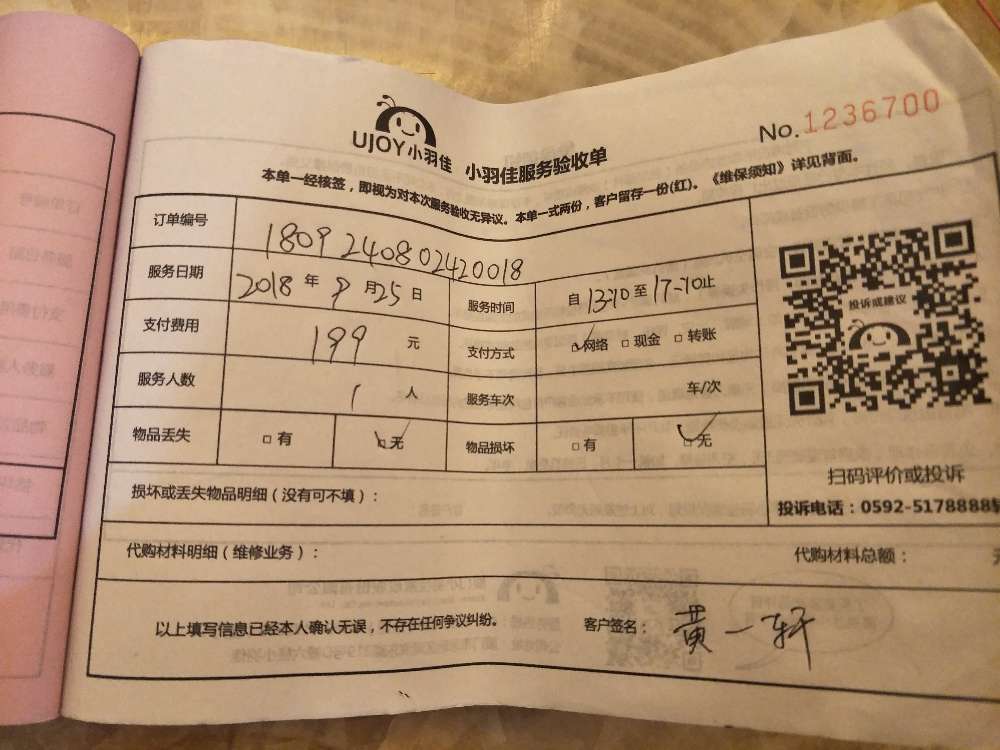 UJOY小羽佳 小羽佳服务验收单
No.1236700
本单一经核签，即视为对本次服务验收无异议。本单一式两份，客户留存一份(红)。《维保须知》详见背面。
订单编号 180924080242 0018
服务日期 2018年9月25日 服务时间 自13:10至17:10止
支付费用 199元 支付方式 ☑网络 □现金 □转账
服务人数 1人 服务车次 车/次
物品丢失 □有 ☑无 物品损坏 □有 ☑无
投诉或建议
扫码评价或投诉
投诉电话：0592-5178888
损坏或丢失物品明细（没有可不填）：
代购材料明细（维修业务）： 代购材料总额：
以上填写信息已经本人确认无误，不存在任何争议纠纷。 客户签名：黄一轩